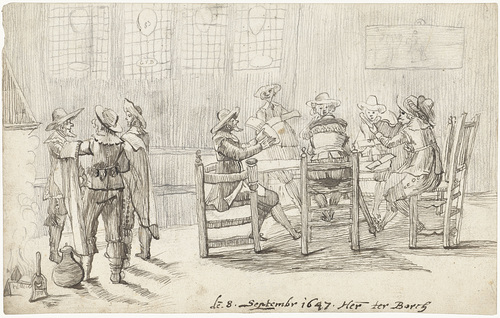 de. 8. Septembr 1647. Her ter Borch